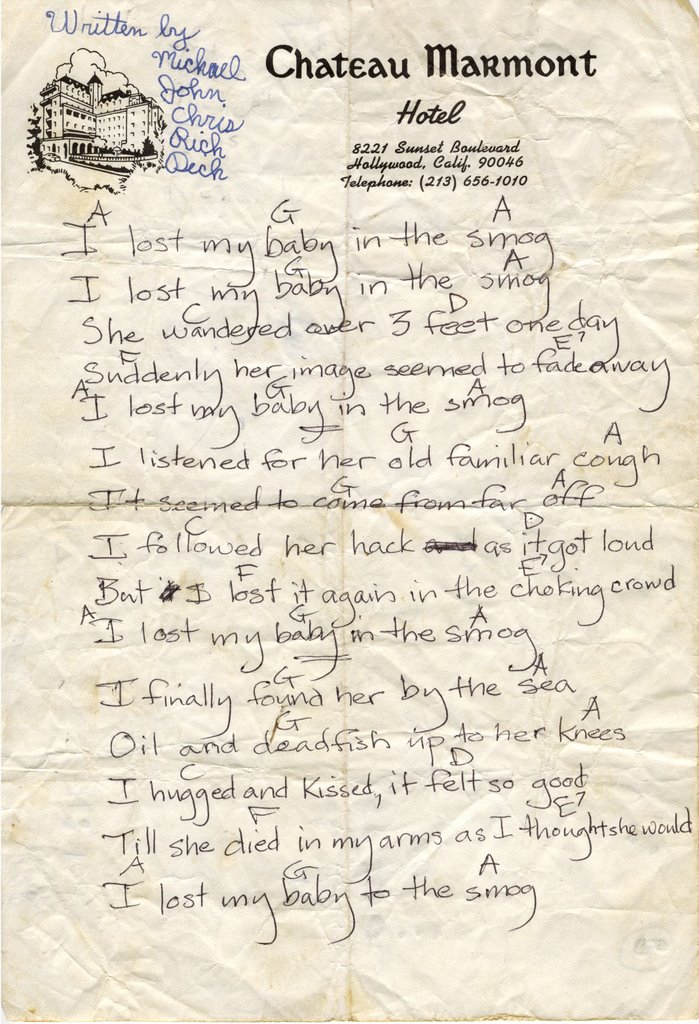 Written by
Michael
John
Chris
Rich
Deck
Chateau Marmont
Hotel
8221 Sunset Boulevard
Hollywood, Calif. 90046
Telephone: (213) 656-1010
A G A
I lost my baby in the smog
G A
I lost my baby in the smog
C D
She wandered over 3 feet one day
F E7
Suddenly her image seemed to fade away
A G A
I lost my baby in the smog
G A
I listened for her old familiar cough
G A
It seemed to come from far off
C D
I followed her hack and as it got loud
F E7
But I lost it again in the choking crowd
A G A
I lost my baby in the smog
G A
I finally found her by the sea
G A
Oil and deadfish up to her knees
C D
I hugged and kissed, it felt so good
F E7
Till she died in my arms as I thought she would
A G A
I lost my baby to the smog